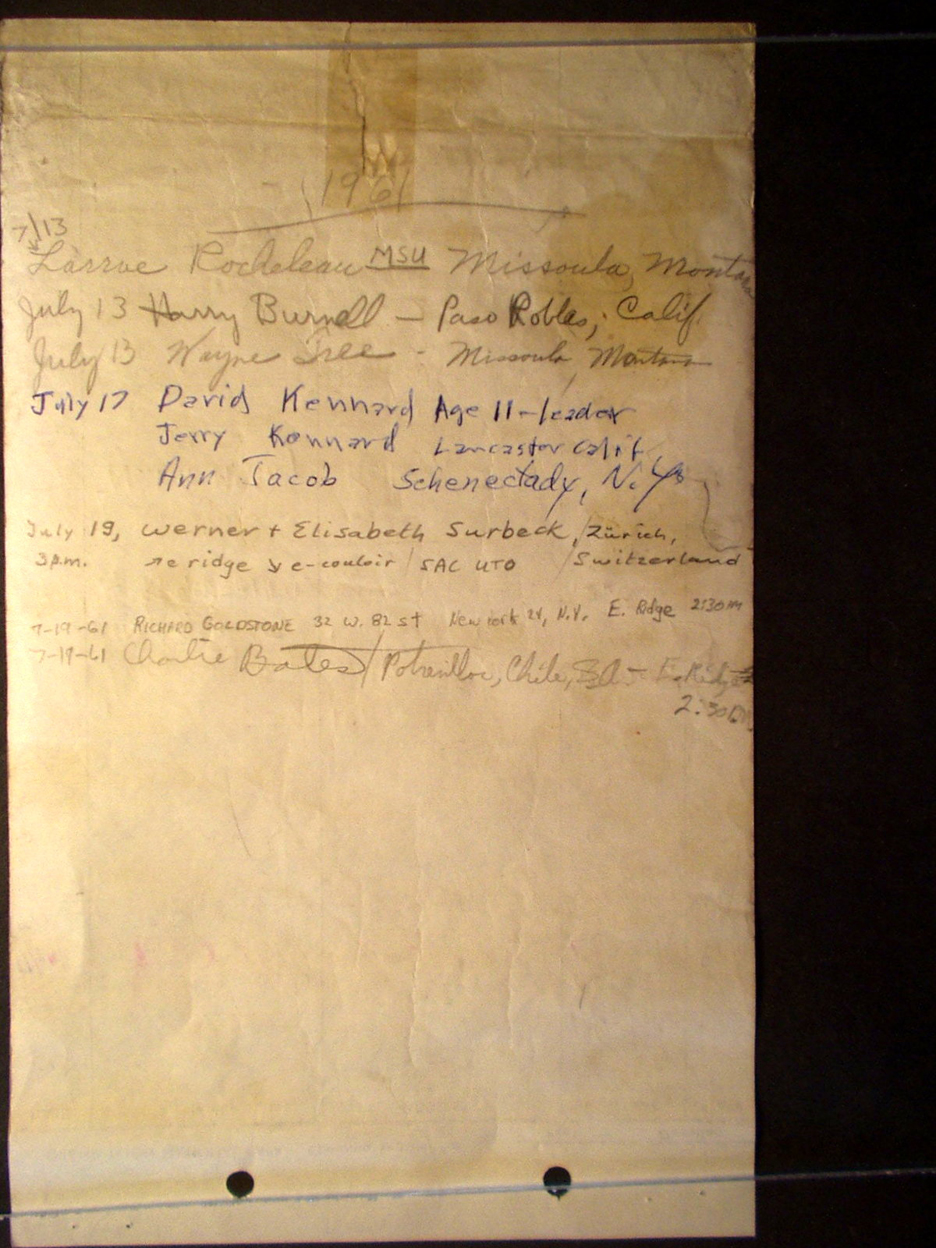 1961
7/13
Larrae Rocheleau MSU Missoula, Montana
July 13 Harry Burnell - Paso Robles, Calif.
July 13 Wayne - Missoula Montana
July 17 David Kennard Age 11-leader
Jerry Kennard Lancaster Calif.
Ann Jacob Schenectady, N.Y.
July 19, Werner + Elisabeth Surbeck / Zürich,
3 p.m. ↗ e ridge ↘ e-couloir / SAC UTO / Switzerland
7-19-61 RICHARD GOLDSTONE 32 W. 82 St New York 24, N.Y. E. Ridge 2:30 PM
7-19-61 Charlie Bates / Potrerillos, Chile, SA - E. Ridge
2:30 PM